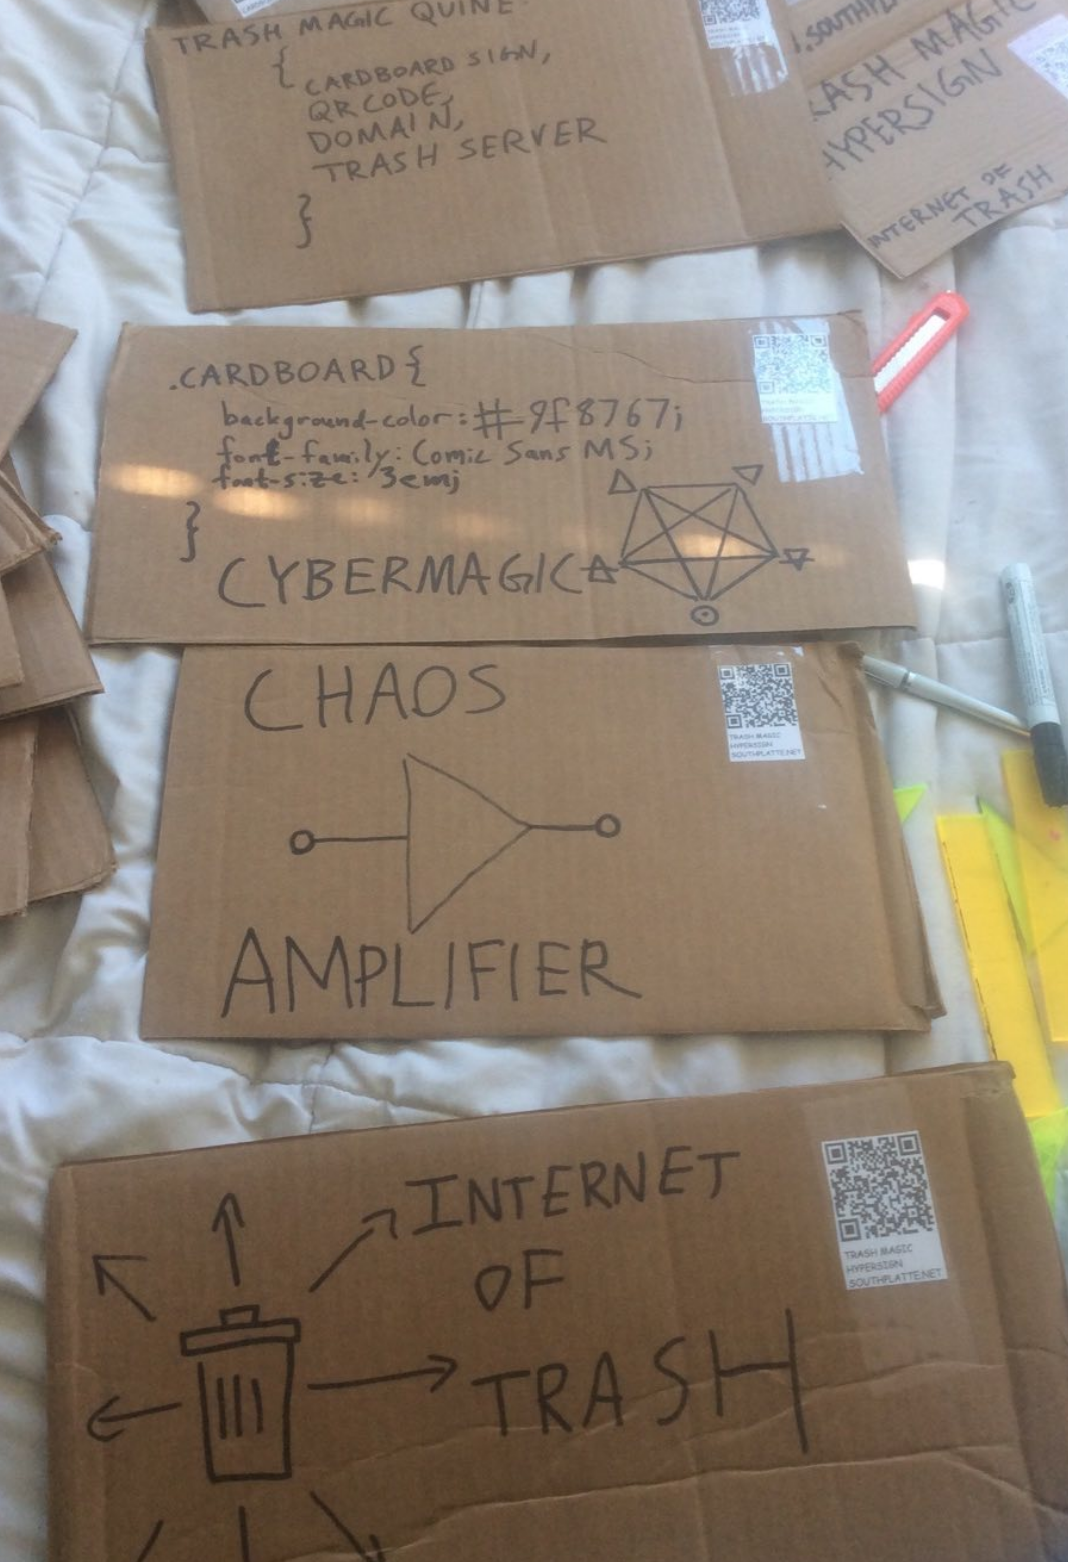 TRASH MAGIC QUINE
{
CARDBOARD SIGN,
QR CODE,
DOMAIN,
TRASH SERVER
}
MAGIC
HYPERSIGN
INTERNET OF
TRASH
.CARDBOARD {
background-color: #9f8767;
font-family: Comic Sans MS;
font-size: 3em;
}
CYBERMAGIC
CHAOS
AMPLIFIER
TRASH MAGIC
HYPERSIGN
SOUTHPLATTE.NET
INTERNET
OF
TRASH
TRASH MAGIC
HYPERSIGN
SOUTHPLATTE.NET